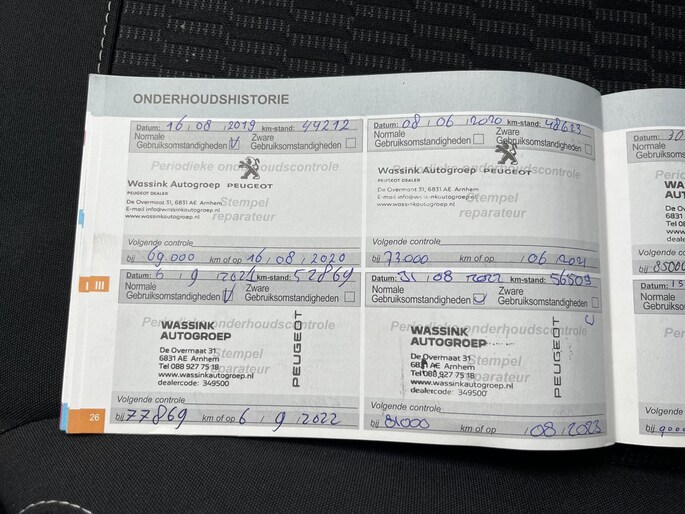 ONDERHOUDSHISTORIE
Datum: 16 / 08 / 2019 km-stand: 44212
Normale
Gebruiksomstandigheden
Zware
Gebruiksomstandigheden
Periodieke onderhoudscontrole
Wassink Autogroep PEUGEOT
PEUGEOT DEALER
De Overmaat 31, 6831 AE Arnhem
E-mail info@wassinkautogroep.nl
www.wassinkautogroep.nl
Stempel
reparateur
Volgende controle
bij 69.000 km of op 16 / 08 / 2020
Datum: 08 / 06 / 2020 km-stand:
Normale
Gebruiksomstandigheden
Zware
Gebruiksomstandigheden
Periodieke onderhoudscontrole
Wassink Autogroep PEUGEOT
PEUGEOT DEALER
De Overmaat 31, 6831 AE Arnhem
www.wassinkautogroep.nl
Stempel
reparateur
Volgende controle
bij 73000 km of op / 06 / 2021
Datum: 6 / 9 / 2021 km-stand: 52869
Normale
Gebruiksomstandigheden
Zware
Gebruiksomstandigheden
Periodieke onderhoudscontrole
WASSINK
AUTOGROEP
De Overmaat 31
6831 AE Arnhem
Tel 088 927 75 18
www.wassinkautogroep.nl
dealercode: 349500
PEUGEOT
Stempel
reparateur
Volgende controle
bij 77869 km of op 6 / 9 / 2022
Datum: 31 / 08 / 2022 km-stand: 56509
Normale
Gebruiksomstandigheden
Zware
Gebruiksomstandigheden
Periodieke onderhoudscontrole
WASSINK
AUTOGROEP
De Overmaat 31
6831 AE Arnhem
Tel 088 927 75 18
www.wassinkautogroep.nl
dealercode: 349500
PEUGEOT
Stempel
reparateur
Volgende controle
bij 81000 km of op / 08 / 2023
26
Datum: 30
Normale
WASSINK
AUTOG
Volgende co
bij 85000
Datum: 15
Normale
Volgende
bij